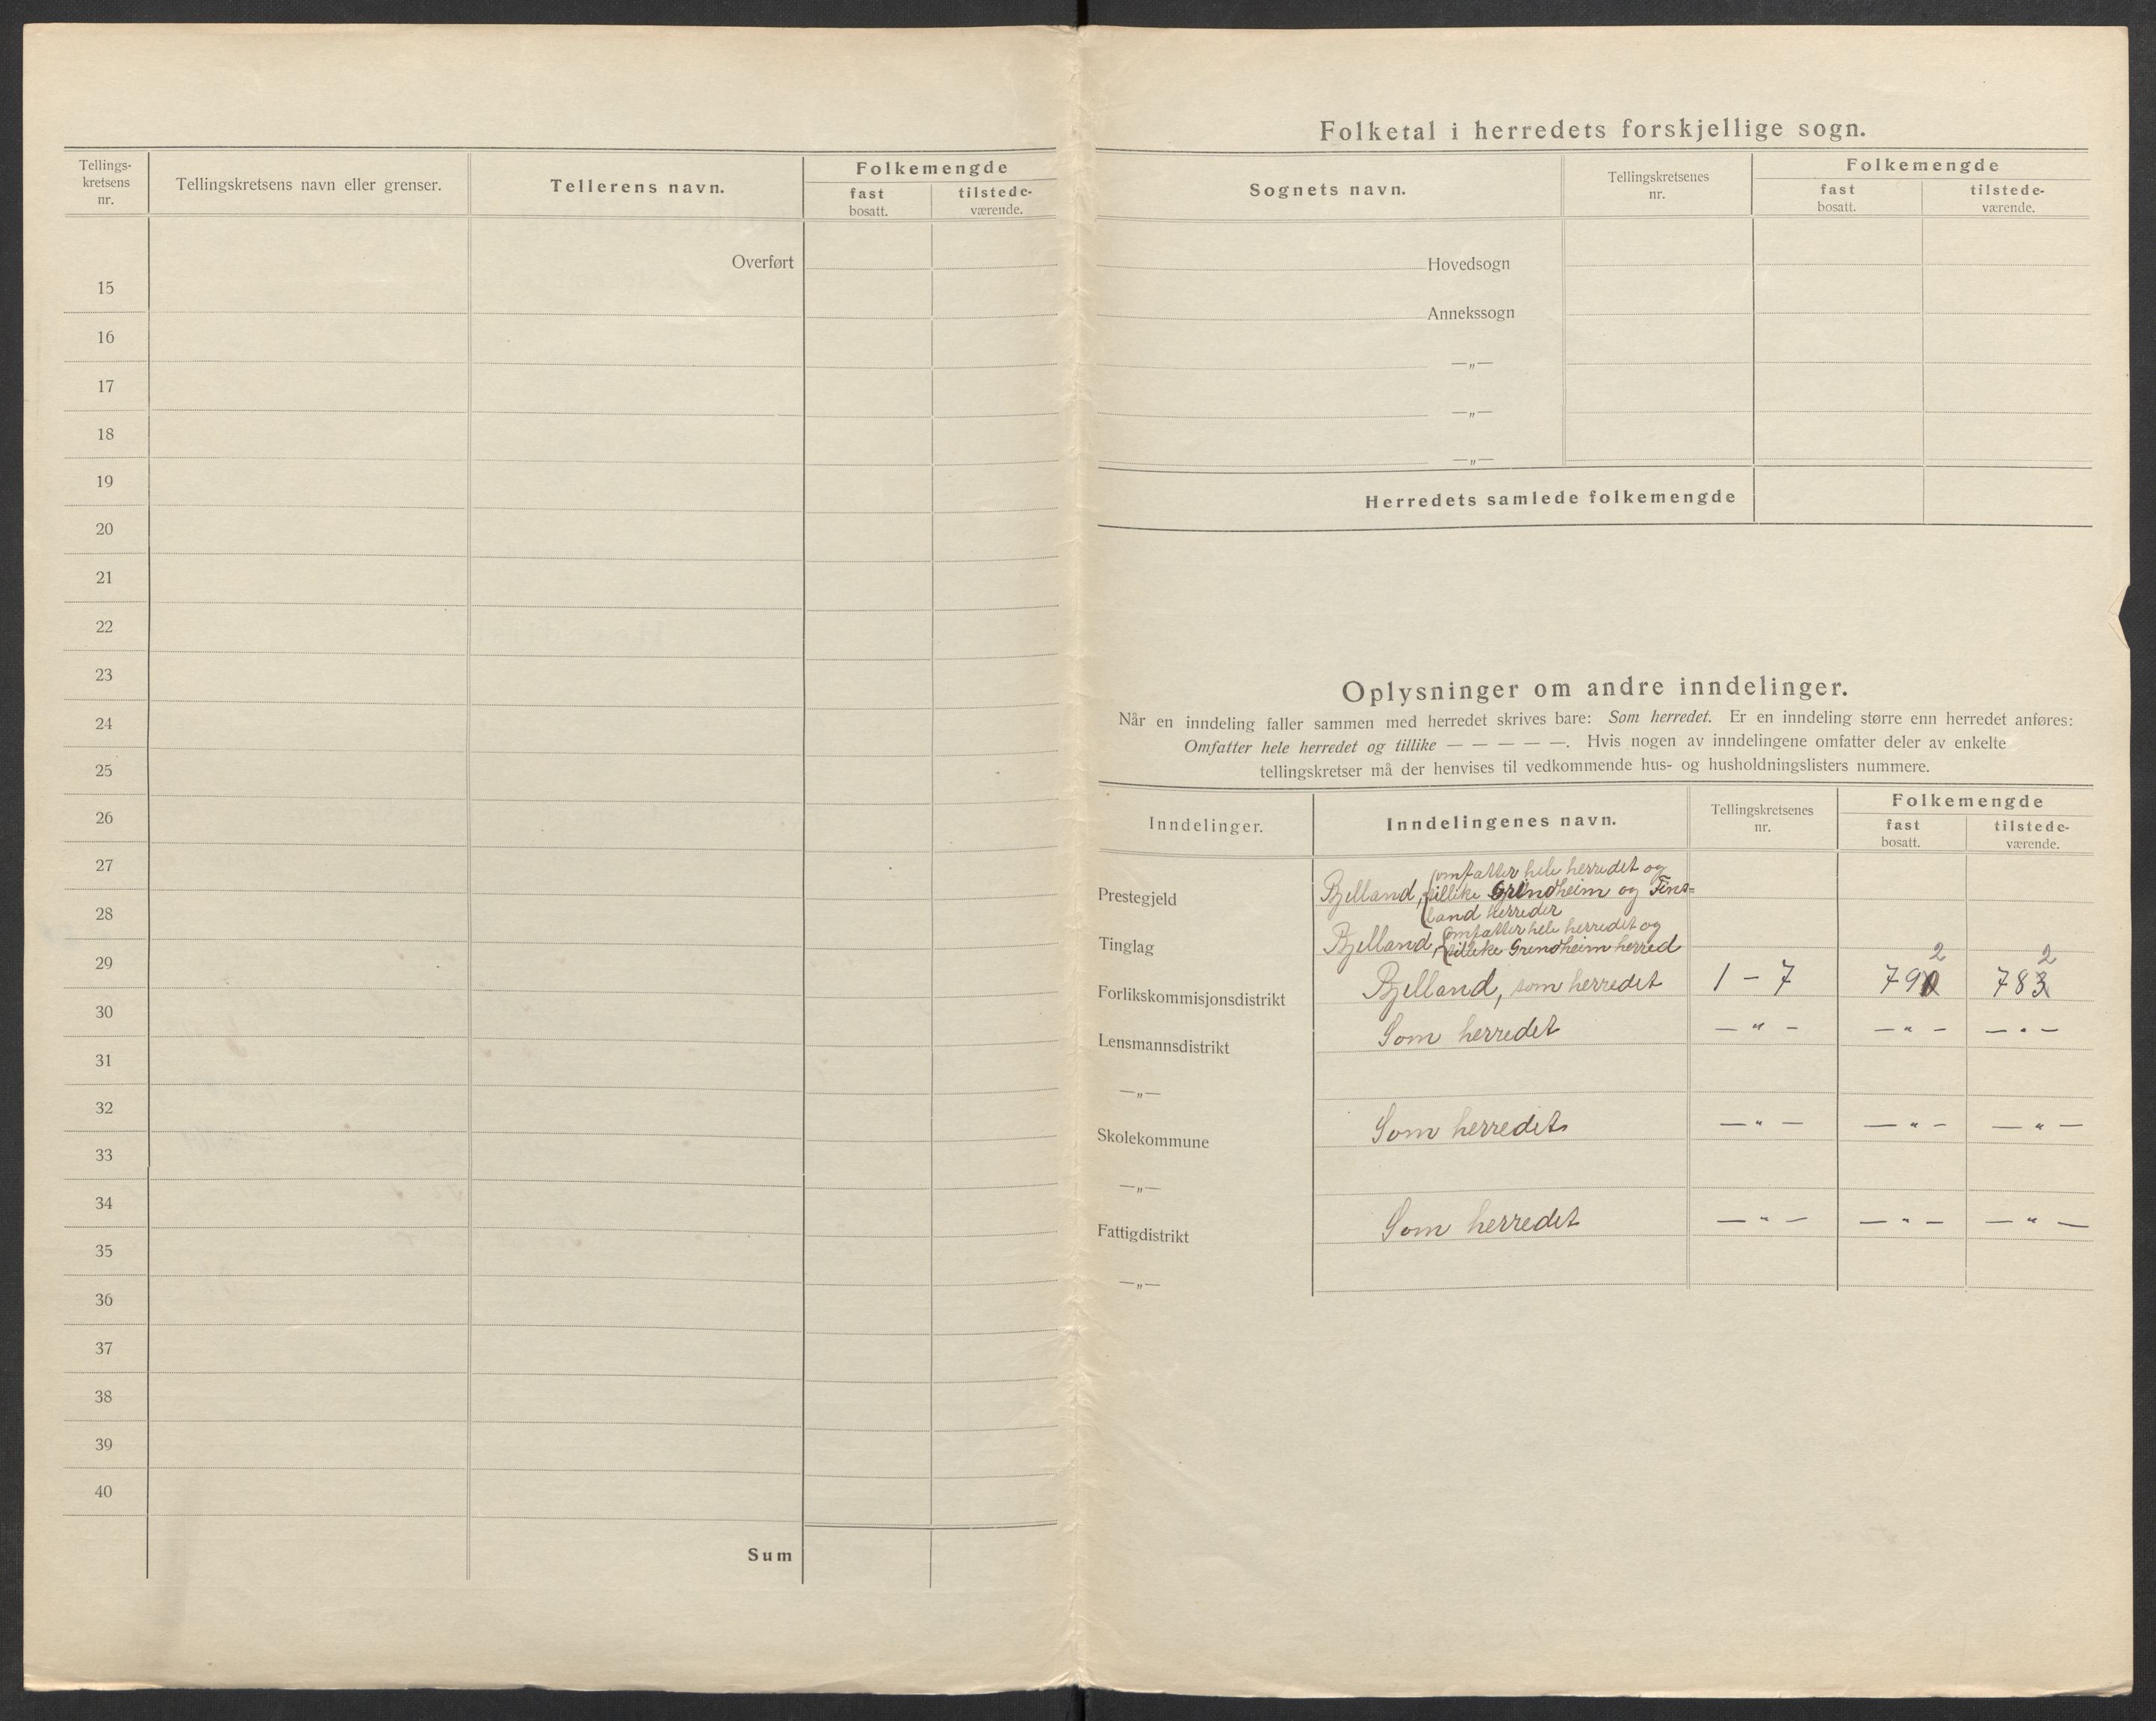 Tellings-
kretsens
nr.
Tellingskretsens navn eller grenser.
Tellerens navn.
Folkemengde
fast
bosatt.
tilstede-
værende.
Overført
15
16
17
18
19
20
21
22
23
24
25
26
27
28
29
30
31
32
33
34
35
36
37
38
39
40
Sum
Folketal i herredets forskjellige sogn.
Sognets navn.
Tellingskretsenes
nr.
Folkemengde
fast
bosatt.
tilstede-
værende.
Hovedsogn
Annekssogn
—„—
—„—
—„—
Herredets samlede folkemengde
Oplysninger om andre inndelinger.
Når en inndeling faller sammen med herredet skrives bare: Som herredet. Er en inndeling større enn herredet anføres:
Omfatter hele herredet og tillike — — — — —. Hvis nogen av inndelingene omfatter deler av enkelte
tellingskretser må der henvises til vedkommende hus- og husholdningslisters nummere.
Inndelinger.
Inndelingenes navn.
Tellingskretsenes
nr.
Folkemengde
fast
bosatt.
tilstede-
værende.
Prestegjeld
Bjelland, (omfatter hele herredet og
tillike Grindheim og Fins=
land herreder
Tinglag
Bjelland, (omfatter hele herredet og
tillike Grendheim herred
Forlikskommisjonsdistrikt Bjelland, som herredet 1 - 7 790 2 783 2
Lensmannsdistrikt Som herredet — „ — — „ — — „ —
—„—
Skolekommune Som herredet — „ — — „ — — „ —
—„—
Fattigdistrikt Som herredet — „ — — „ — — „ —
—„—